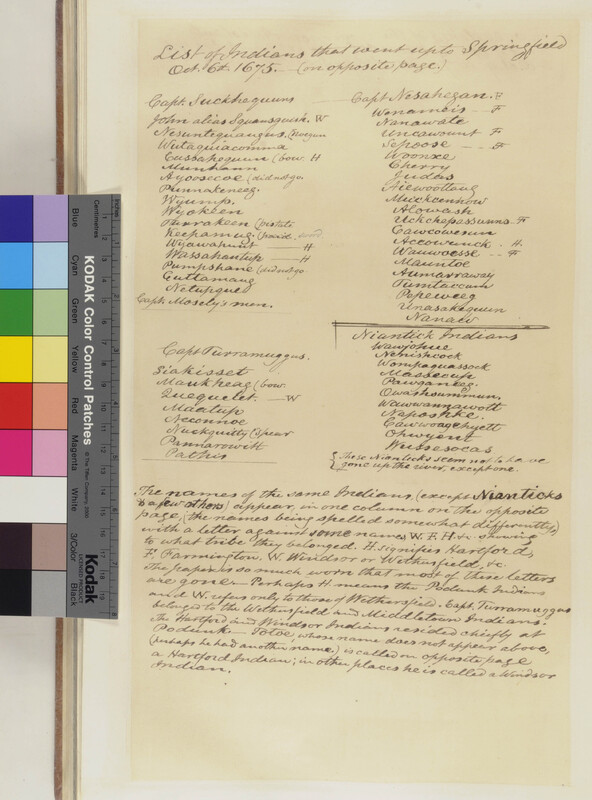 List of Indians that went up to Springfield
Oct. 6th 1675. — (on opposite page.)
Capt. Suckhequuns
John alias Squansquish W
Nesuntequangus (Norgan
Wutaquiacomma
Cussahequum (bow. H
Munhann
Ayoosecoe (did not go
Punnakeneeg.
Wyump.
Wyokeen
Purrakeen (pistole
Keepamug (paid. sword
Wyawahunt — H
Wassahontup — H
Pumpshane (did not go
Cuttamaug
Netupque
Capt. Mosely's men.
Capt Nesahegan. F
Wenameis — F
Nanawate
Uncawount F
Sepoose — F
Woonxe
Cherry
Judas
Piewoottaug
Muckcannow
Alowash
Uckchepassums. F
Cawcowesun
Accowunck. H
Wauwoesse — F
Mauntoe
Aumarraway
Tumtaccum
Popeweeg
Unasakequun
Nanaw
Capt Turramuggus.
Siakisset
Maukheag (bow.
Quequelet. — W
Maatup
Acconnoe
Nuckquitty (Spear
Pannarowitt
Pathis
Niantick Indians
Wawjohue
Nenishcock
Wompaquassock
Massecup
Pawgankeg.
Owashsummun.
Wauwannawott
Naposhke.
Cawwoaychyett
Ohwyent
Wussesocas
{ These Nianticks seem not to have
gone up the river, except one.
The names of the same Indians (except Nianticks
& a few others) appear, in one column on the opposite
page, (the names being spelled somewhat differently,)
with a letter against some names, W. F. H. &c. showing
to what tribe they belonged. H signifies Hartford,
F. Farmington. W. Windsor or Wethersfield, &c.
The paper is so much worn that most of these letters
are gone — Perhaps H means the Podunk Indians
and W. refers only to those of Wethersfield. Capt. Turramuggus
belonged to the Wethersfield and Middletown Indians.
The Hartford and Windsor Indians resided chiefly at
Podunk — Totoe, whose name does not appear above,
(perhaps he had another name,) is called on opposite page
a Hartford Indian; in other places he is called a Windsor
Indian.
Centimetres
Inches
KODAK Color Control Patches
© The Tiffen Company, 2000
Kodak
LICENSED PRODUCT
Blue
Cyan
Green
Yellow
Red
Magenta
White
3/Color
Black